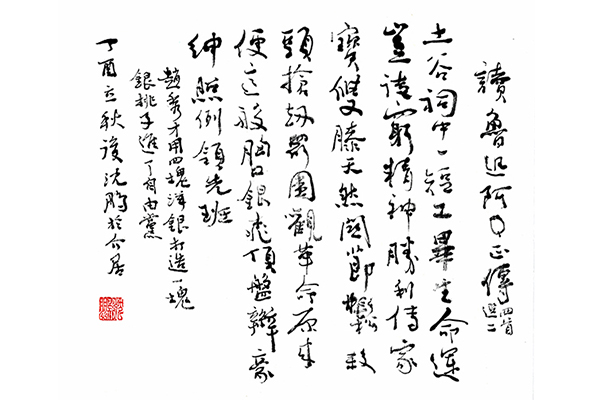 讀魯迅阿Q正傳 四首選二
土谷祠中一短工畢生命運
豈窮精神勝利傳家
寶雙膝天然關節鬆殺
頭搶劫圍觀革命原來
便這般胸口銀桃頂盤辮豪
紳照例領先班
趙秀才用四塊洋銀打造一塊
銀桃子進了自由黨
丁酉立秋後沈鵬於介居